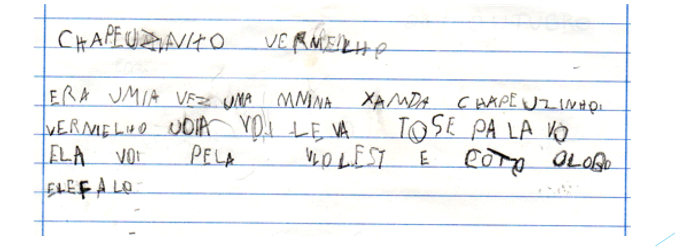 CHAPEUZINHO VERMELHO
ERA UMIA VEZ UMA MNINA XAMDA CHAPEUZINHO
VERMELHO UDIA VOI LEVA TOSE PALA VO
ELA VOI PELA VLOLEST E COTO OLOBO
ELEFALO